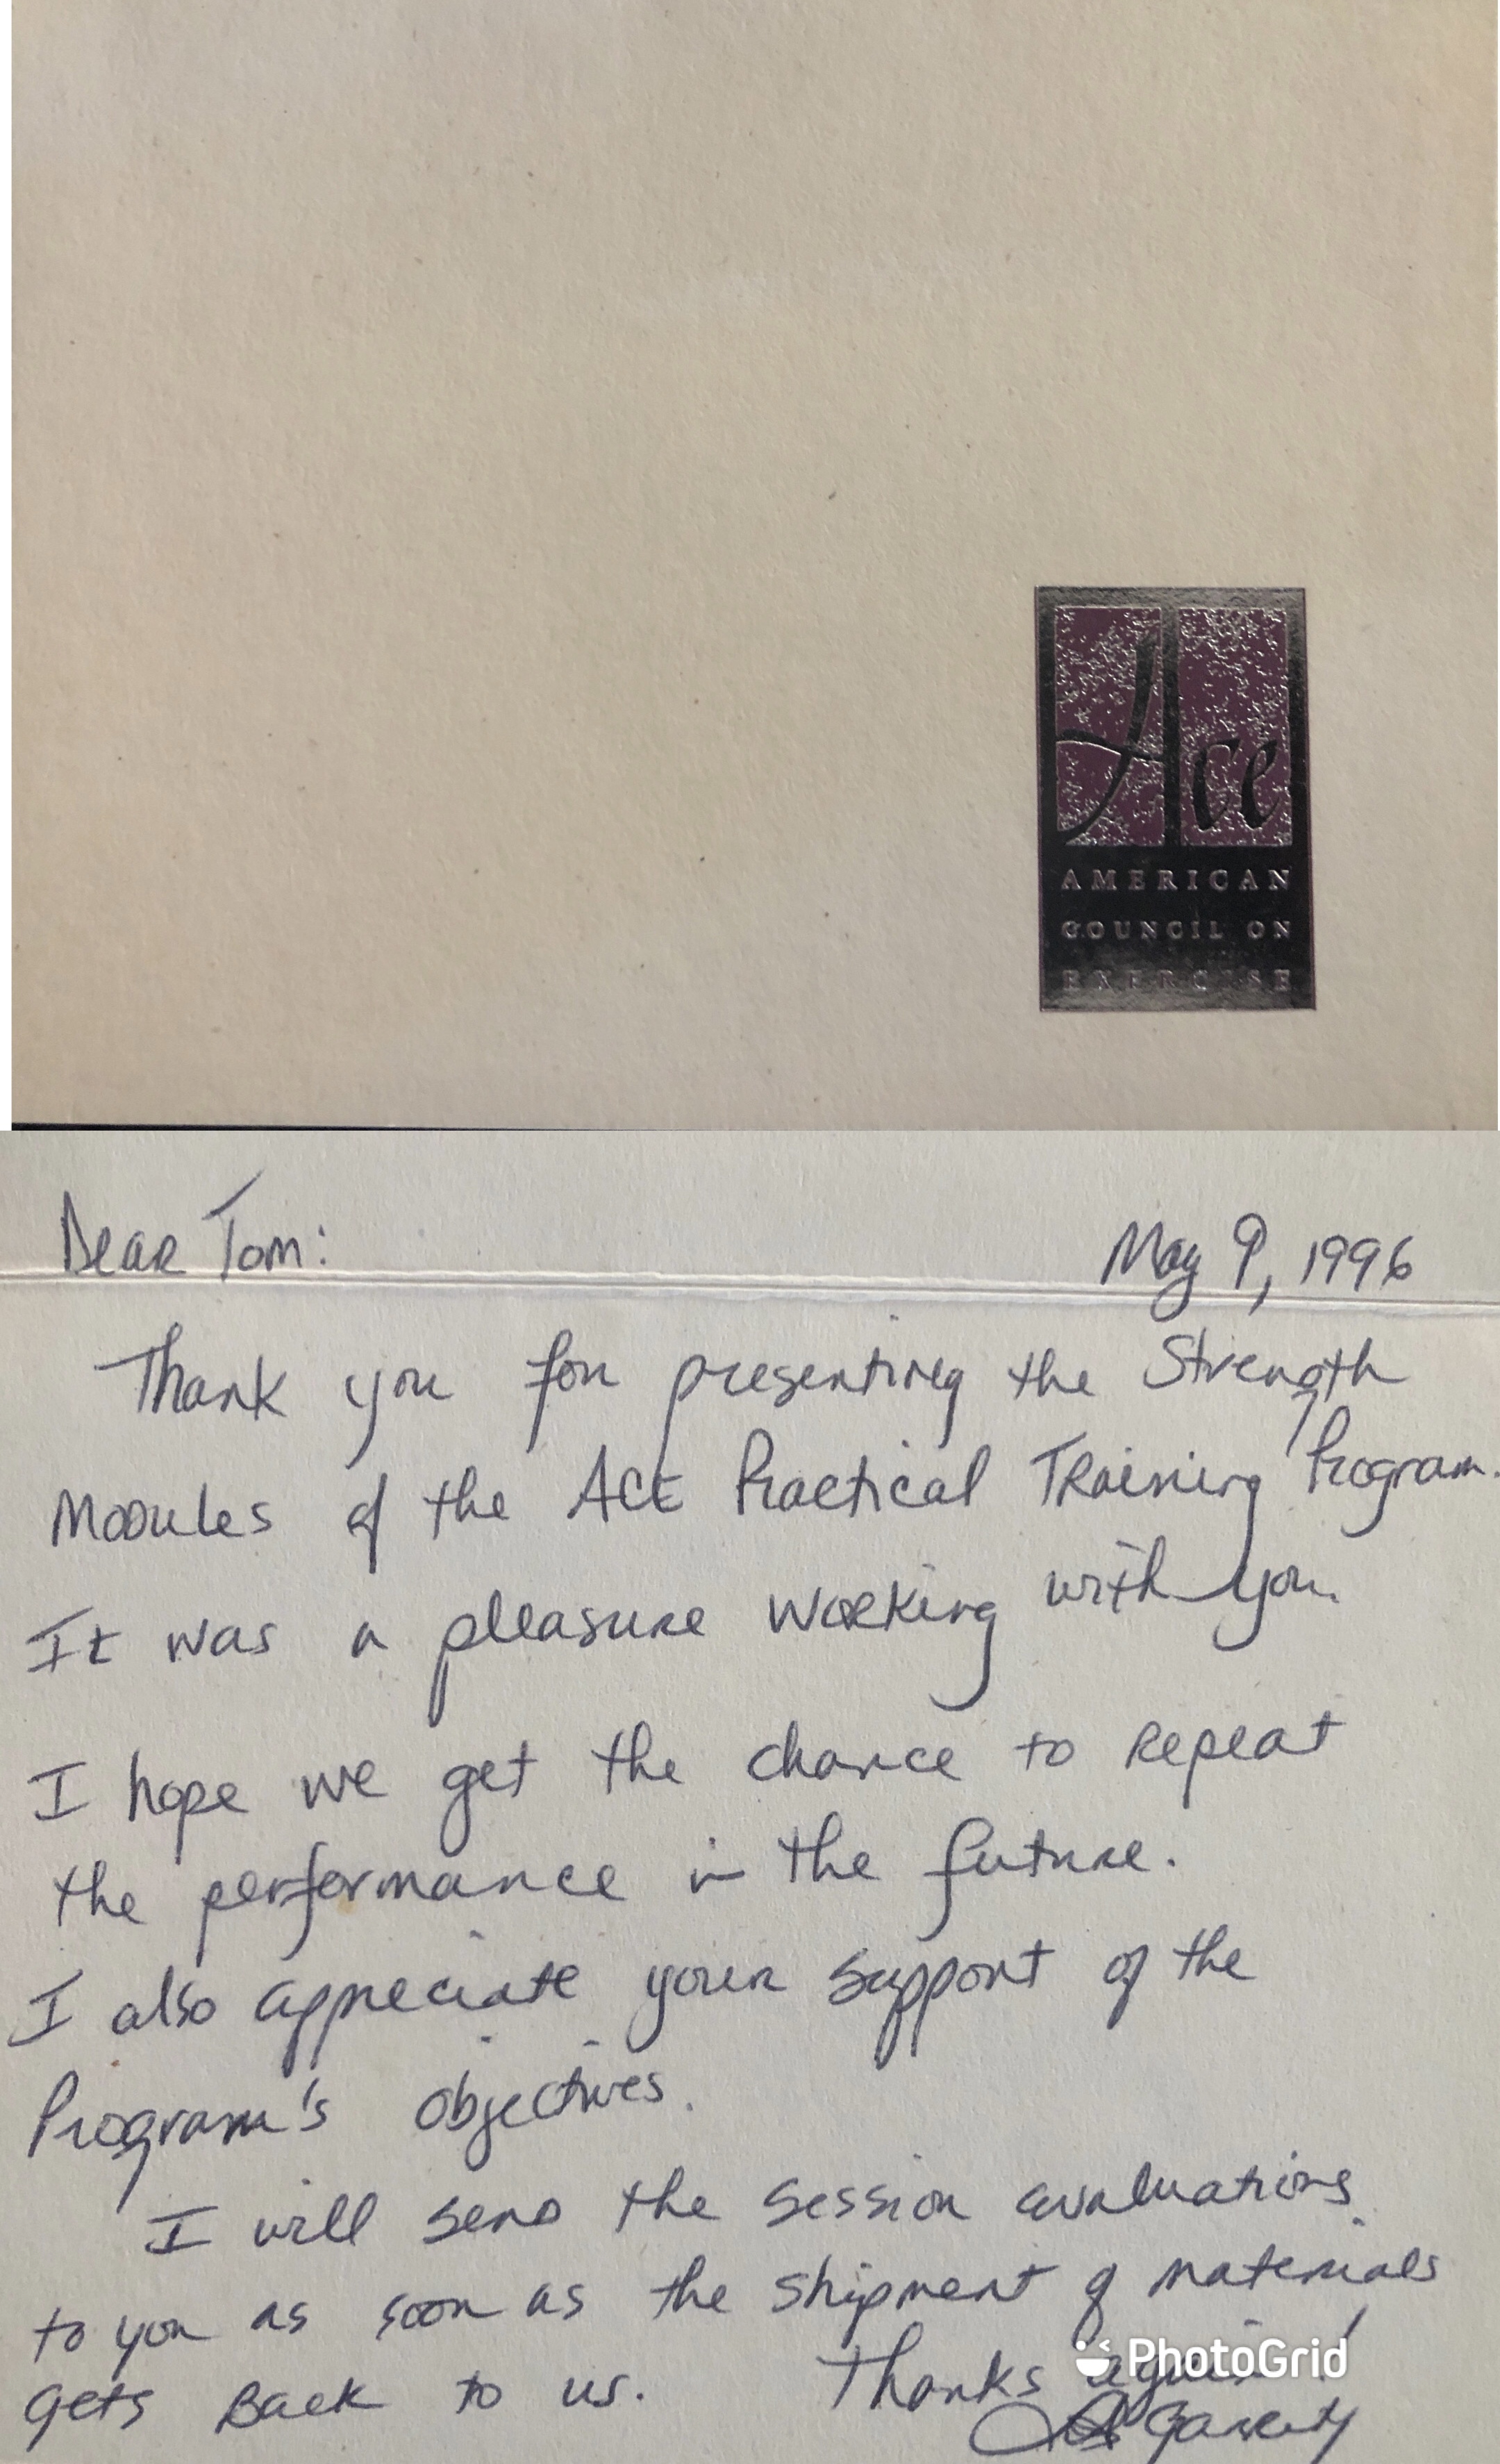 Ace
AMERICAN
COUNCIL ON
EXERCISE
Dear Tom:
May 9, 1996
Thank you for presenting the Strength
Modules of the ACE Practical Training Program.
It was a pleasure working with you.
I hope we get the chance to repeat
the performance in the future.
I also appreciate your support of the
Program's objectives.
I will send the session evaluations
to you as soon as the shipment of materials
gets Back to us.
Thanks again
PhotoGrid